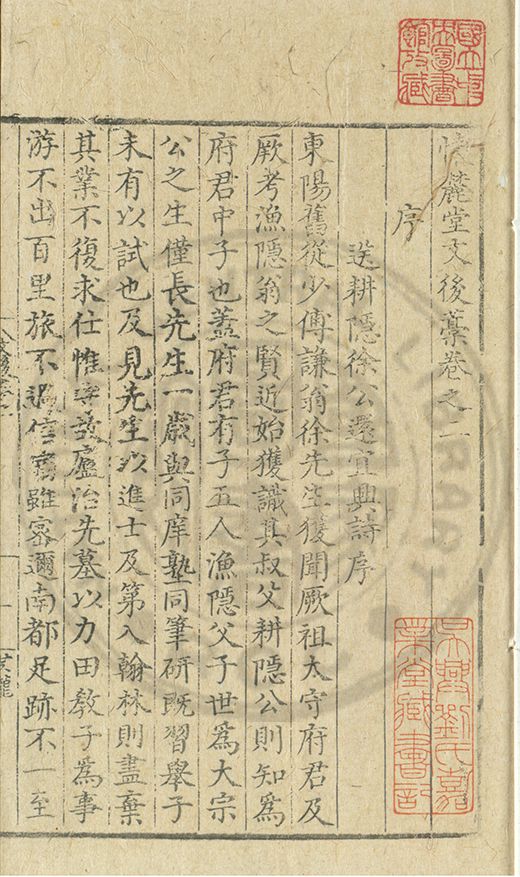 懷麓堂文後藁卷之二
序
送耕隱徐公還宜興詩序
東陽舊從少傅謙翁徐先生獲聞厥祖太守府君及
厥考漁隱翁之賢近始獲識其叔父耕隱公則知為
府君中子也蓋府君有子五人漁隱父子世為大宗
公之生僅長先生一歲與同庠塾同筆研既習舉子
未有以試也及見先生以進士及第入翰林則盡棄
其業不復求仕惟守故廬治先墓以力田教子為事
游不出百里旅不過信宿雖密邇南都足跡不一至
國立中央圖書館收藏
吳興劉氏嘉業堂藏書記